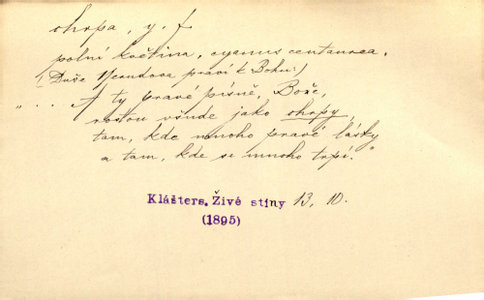 chrpa, y. f
polní květina, cyanus centaurea.
(Duše Nerudova praví k Bohu:)
„... A ty pravé písně, Bože,
rostou všude jako chrpy,
tam, kde mnoho pravé lásky
a tam, kde se mnoho trpí."
Klášters. Živé stíny 13, 10.
(1895)